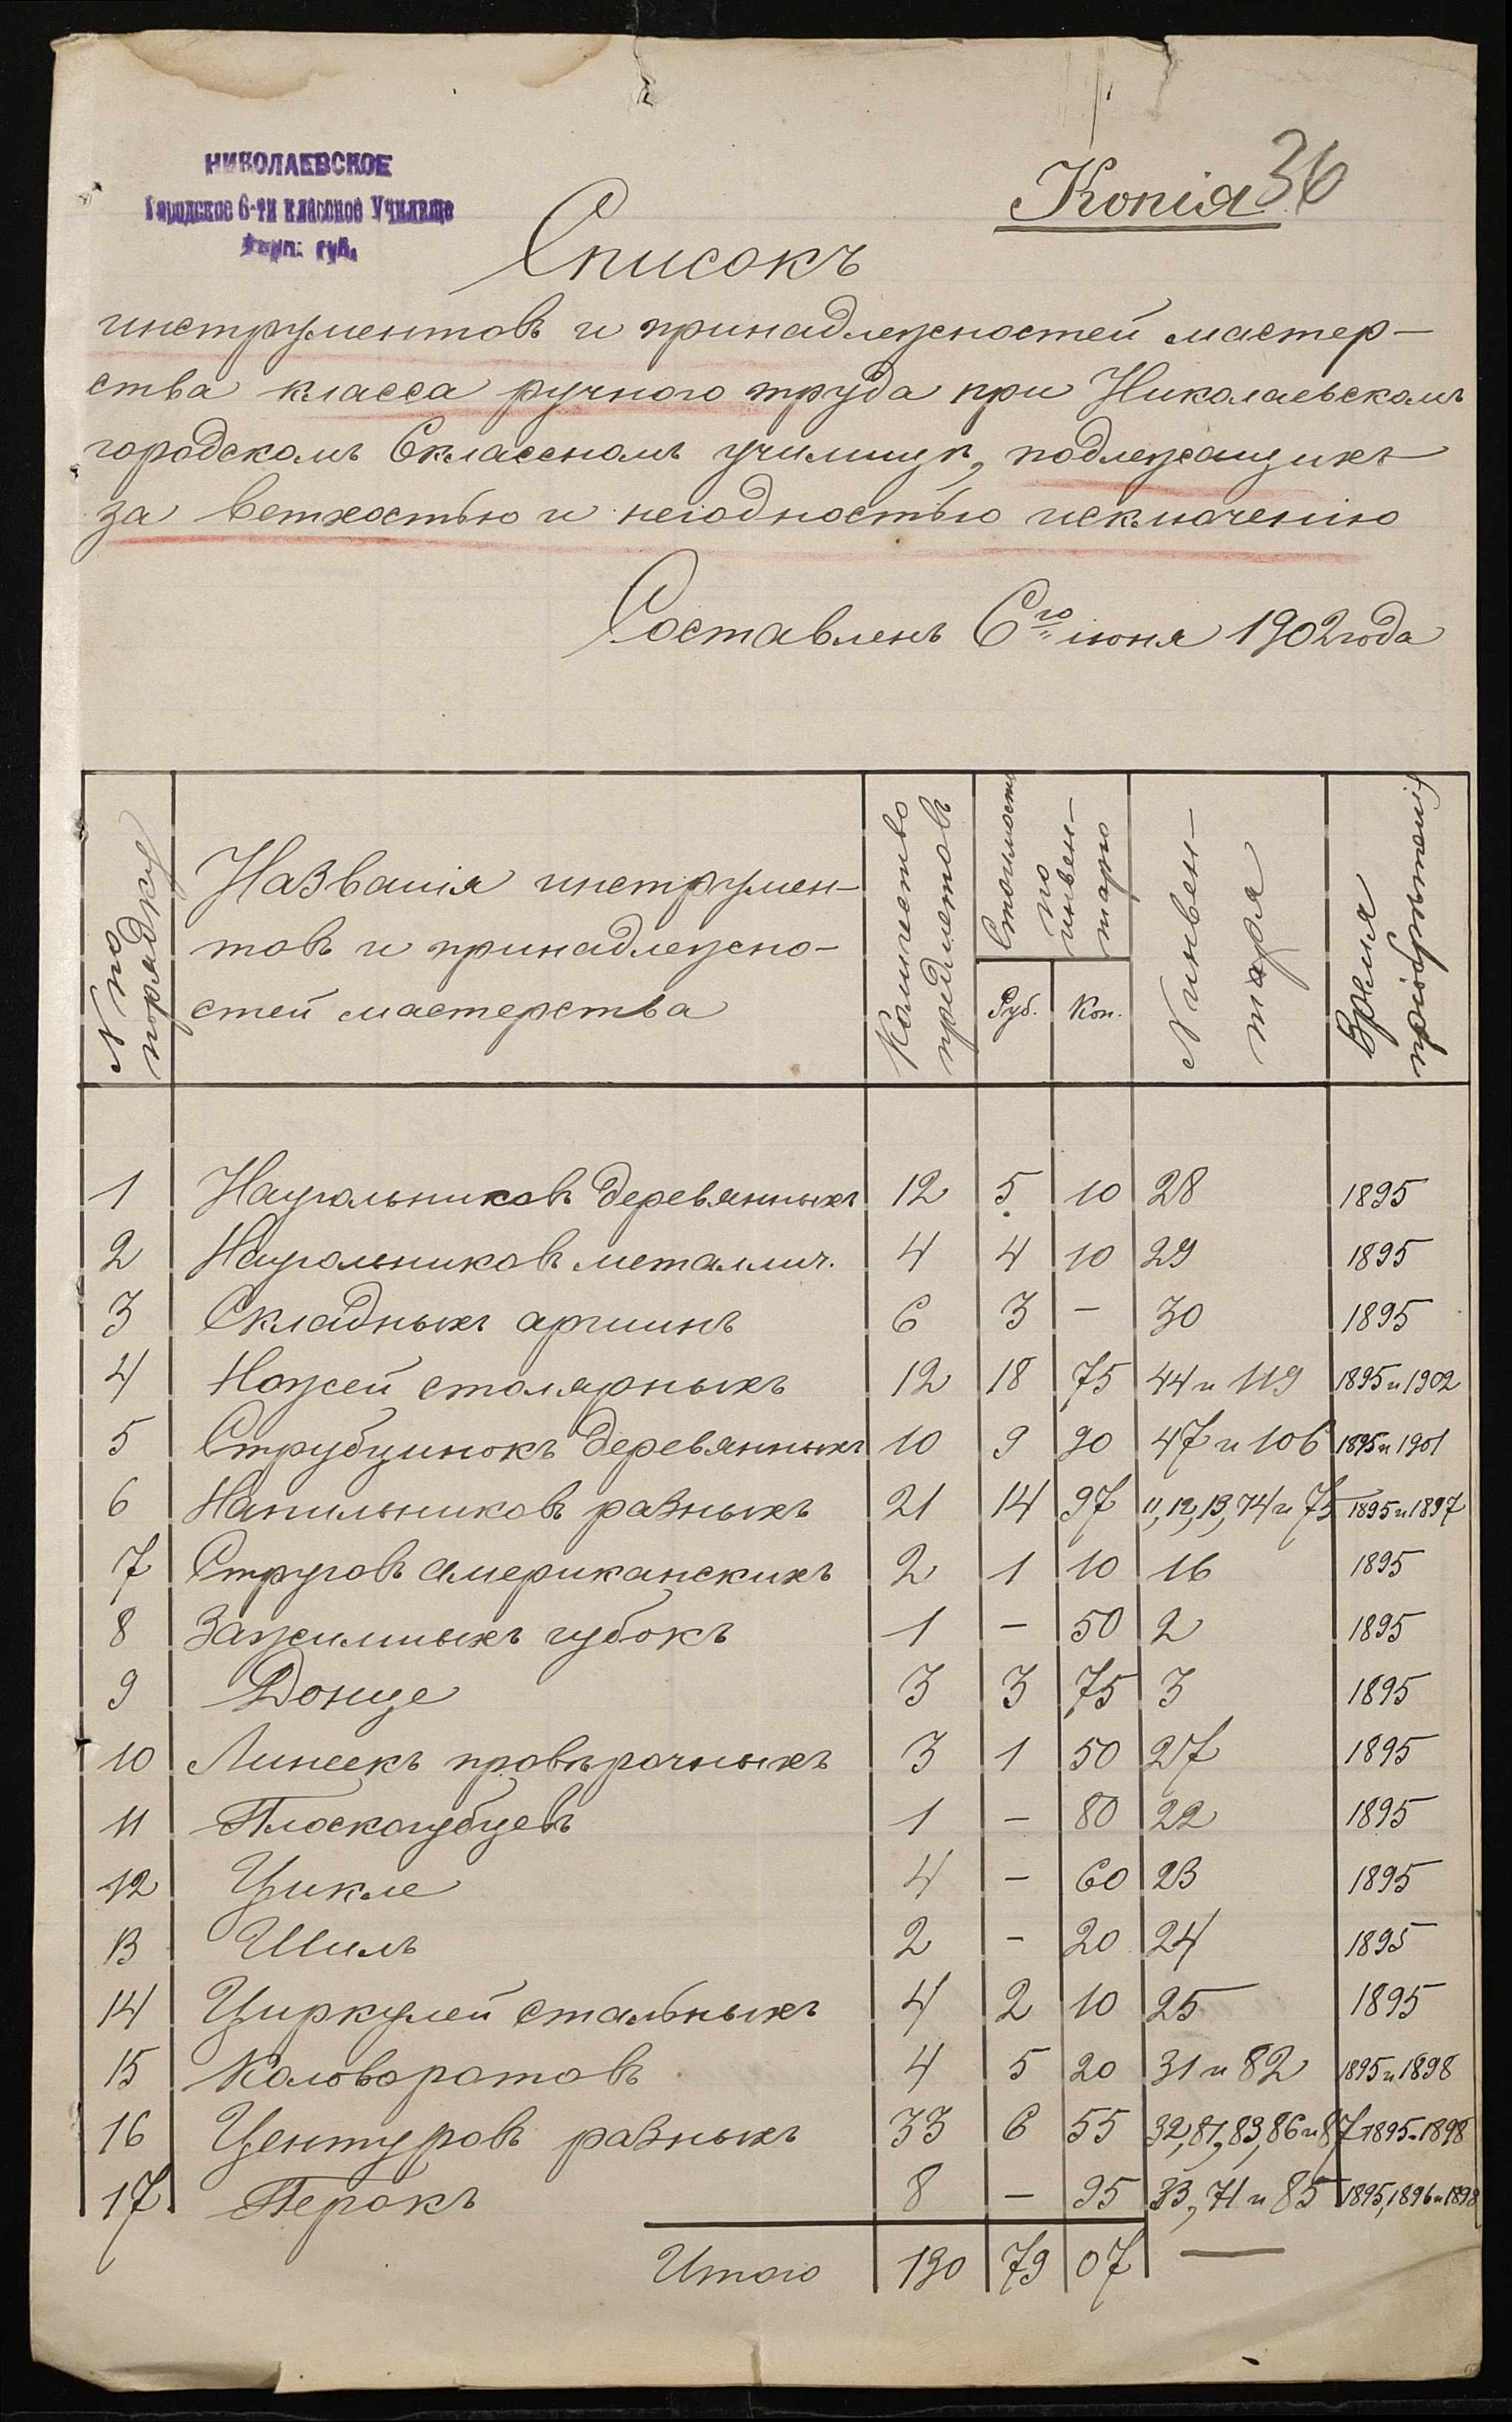 НИКОЛАЕВСКОЕ
Городское 6-ти классное Училище
губ.
Копія 36
Списокъ
инструментовъ и принадлежностей мастер-
ства класса ручного труда при Николаевскомъ
городскомъ 6классномъ училищѣ, подлежащихъ
за ветхостью и негодностью исключенію
Составленъ 6го іюня 1902 года
N по порядку
Названія инструмен-
товъ и принадлежно-
стей мастерства
Количество предметовъ
Стоимость по инвен-тарю
Руб. Коп.
N инвен-таря
Время пріобрѣтенія
1 Наугольниковъ деревянныхъ 12 5 10 28 1895
2 Наугольниковъ металлич. 4 4 10 29 1895
3 Складныхъ аршинъ 6 3 – 30 1895
4 Ножей столярныхъ 12 18 75 44 и 119 1895 и 1902
5 Струбцинокъ деревянныхъ 10 9 90 47 и 106 1895 и 1901
6 Напильниковъ разныхъ 21 14 97 11, 12, 13, 74 и 75 1895 и 1897
7 Струговъ американскихъ 2 1 10 16 1895
8 Зажимныхъ губокъ 1 – 50 2 1895
9 Донце 3 3 75 3 1895
10 Линеекъ провѣрочныхъ 3 1 50 27 1895
11 Плоскогубцевъ 1 – 80 22 1895
12 Цикле 4 – 60 23 1895
13 Шилъ 2 – 20 24 1895
14 Циркулей стальныхъ 4 2 10 25 1895
15 Коловоротовъ 4 5 20 31 и 82 1895 и 1898
16 Центуровъ разныхъ 33 6 55 32, 81, 83, 86 и 87 1895 и 1898
17 Перокъ 8 – 95 33, 71 и 85 1895, 1896 и 1898
Итого 130 79 07 —